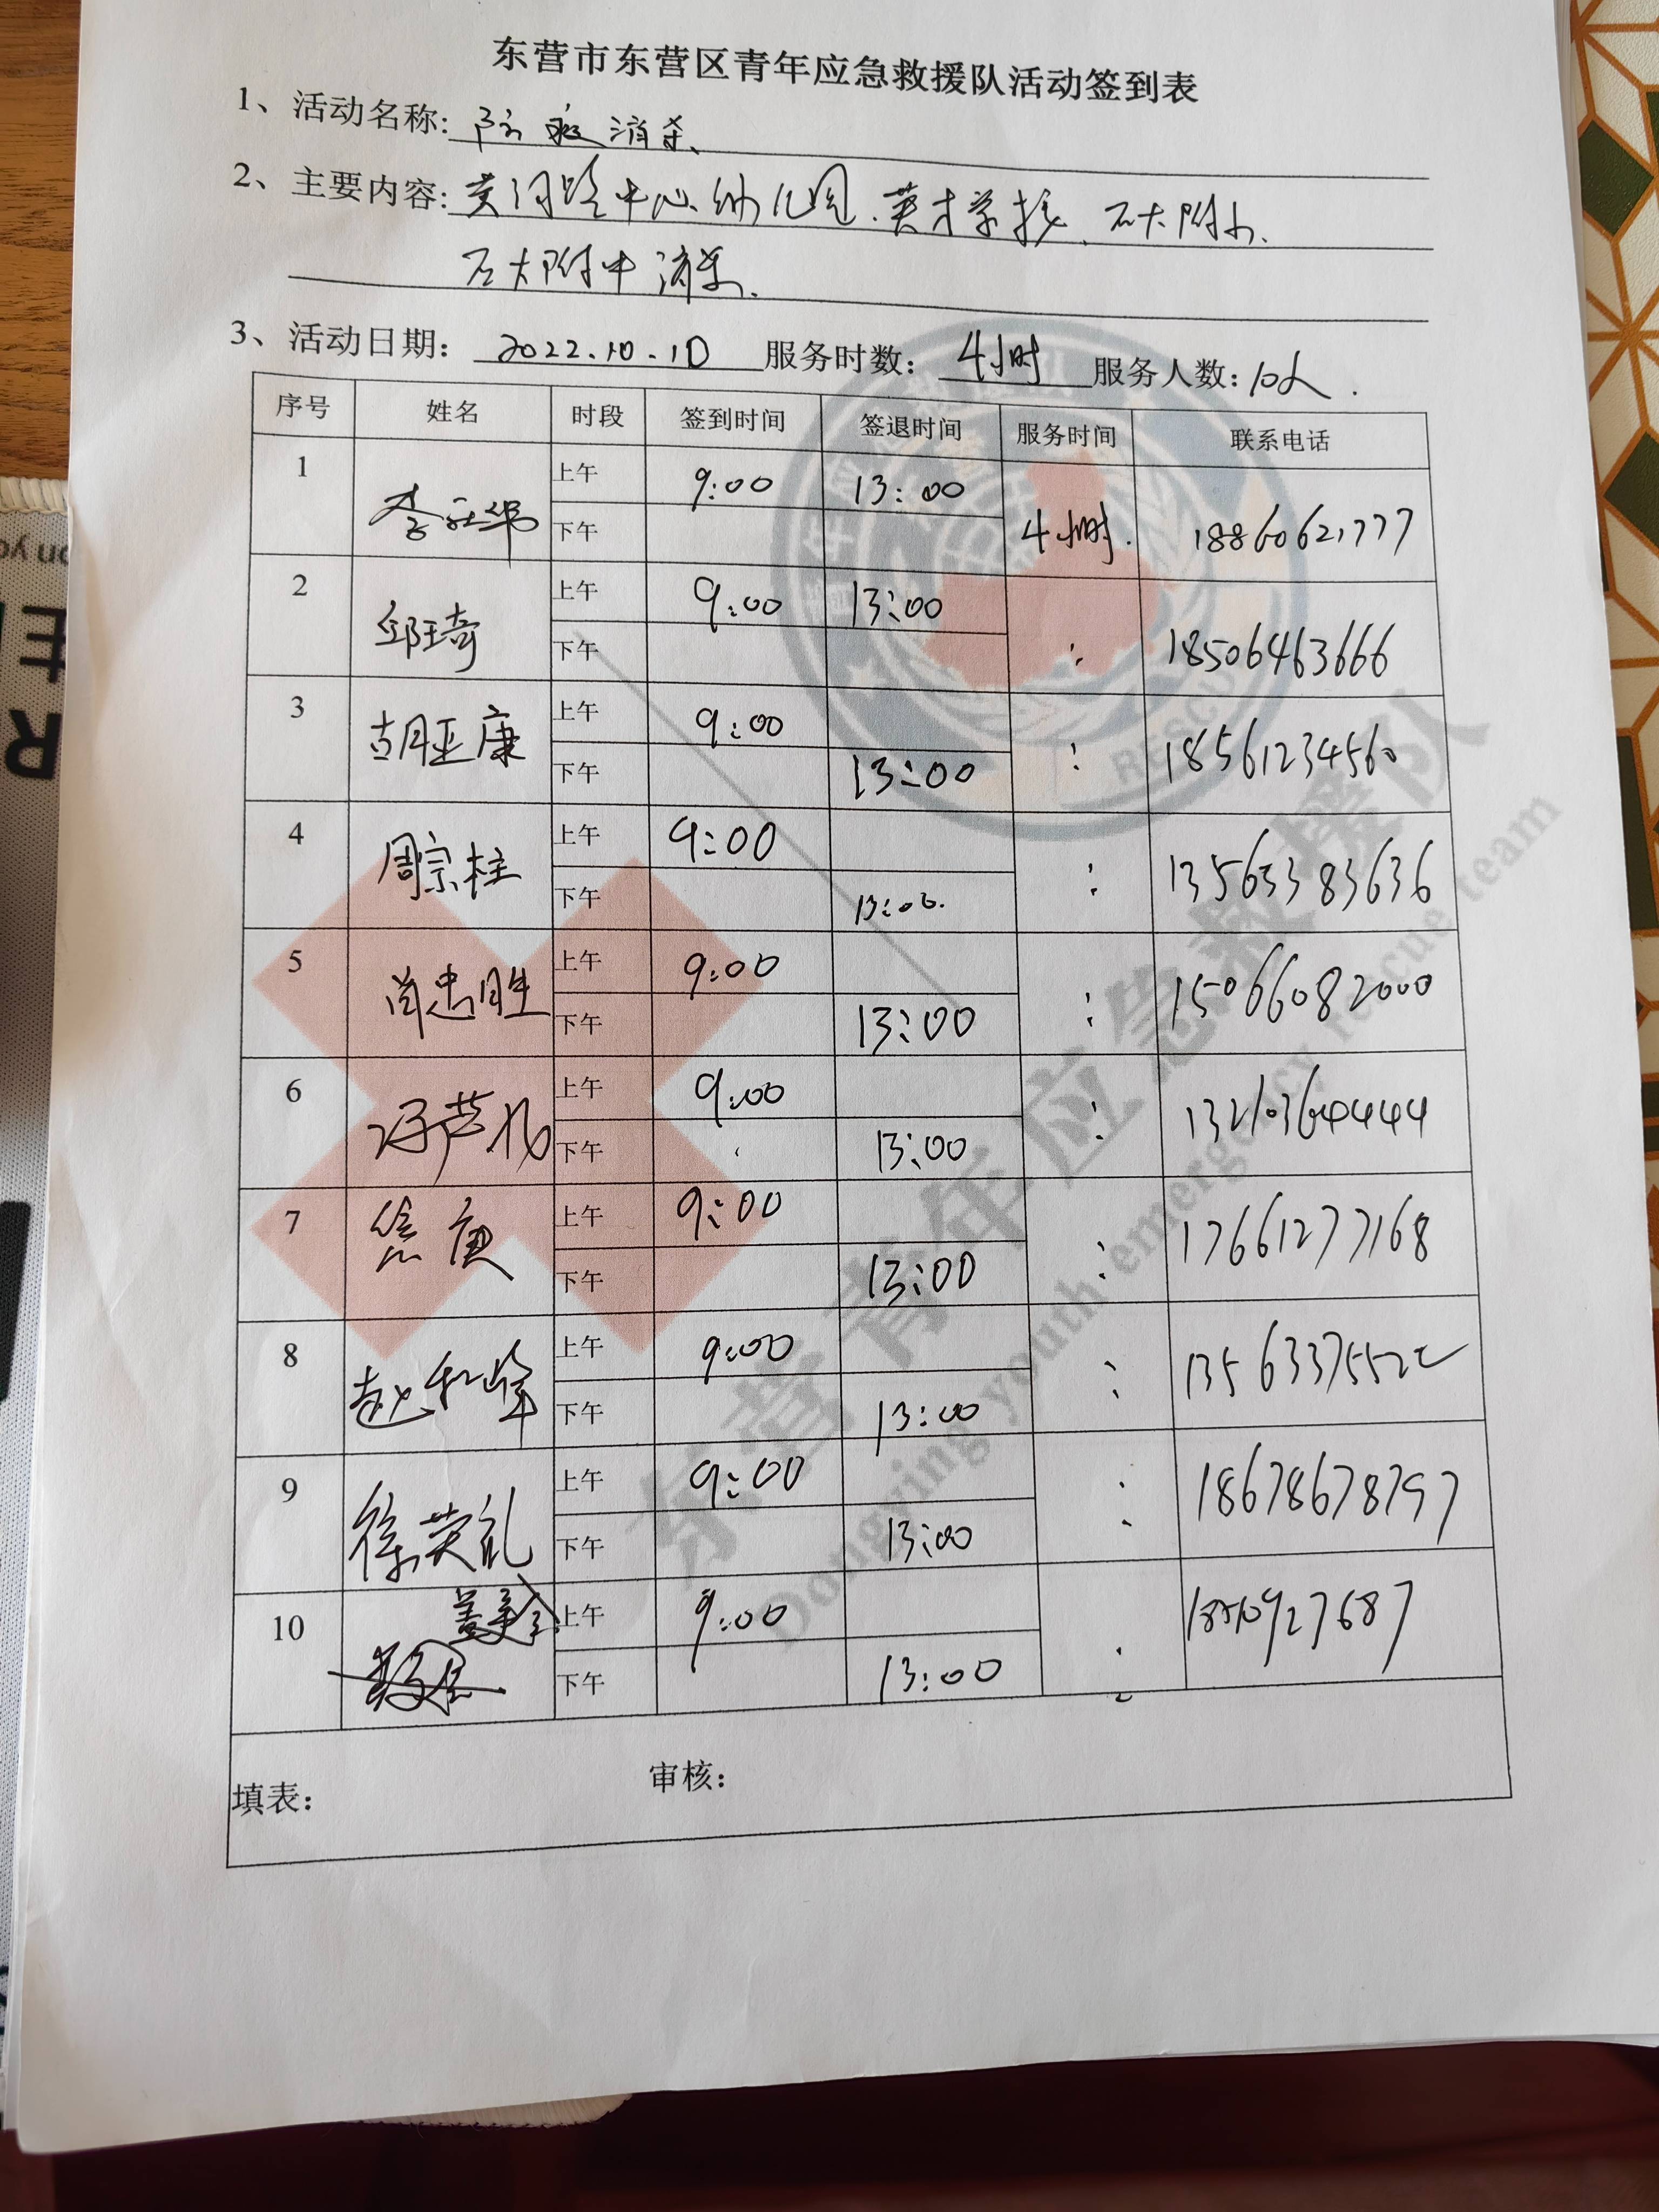 东营市东营区青年应急救援队活动签到表
1、活动名称: 防疫消杀
2、主要内容: 黄河路中心幼儿园、英才学校、石大附小、
石大附中消杀
3、活动日期: 2022.10.10 服务时数: 4小时 服务人数: 10人.
序号 姓名 时段 签到时间 签退时间 服务时间 联系电话
1 上午 9:00 13:00 4小时. 18860621777
下午
2 邱琦 上午 9:00 13:00 18506463666
下午
3 胡亚康 上午 9:00 18561234560
下午 13:00
4 周宗柱 上午 9:00 13563383636
下午 13:00
5 尚忠胜 上午 9:00 15066082000
下午 13:00
6 上午 9:00
下午 13:00
7 上午 9:00 17661277168
下午 13:00
8 赵和峰 上午 9:00 13563375522
下午 13:00
9 徐荣礼 上午 9:00 18678678797
下午 13:00
10 上午 9:00
下午 13:00
填表: 审核:
东营青年应急救援队
Dongying youth emergency rescue team